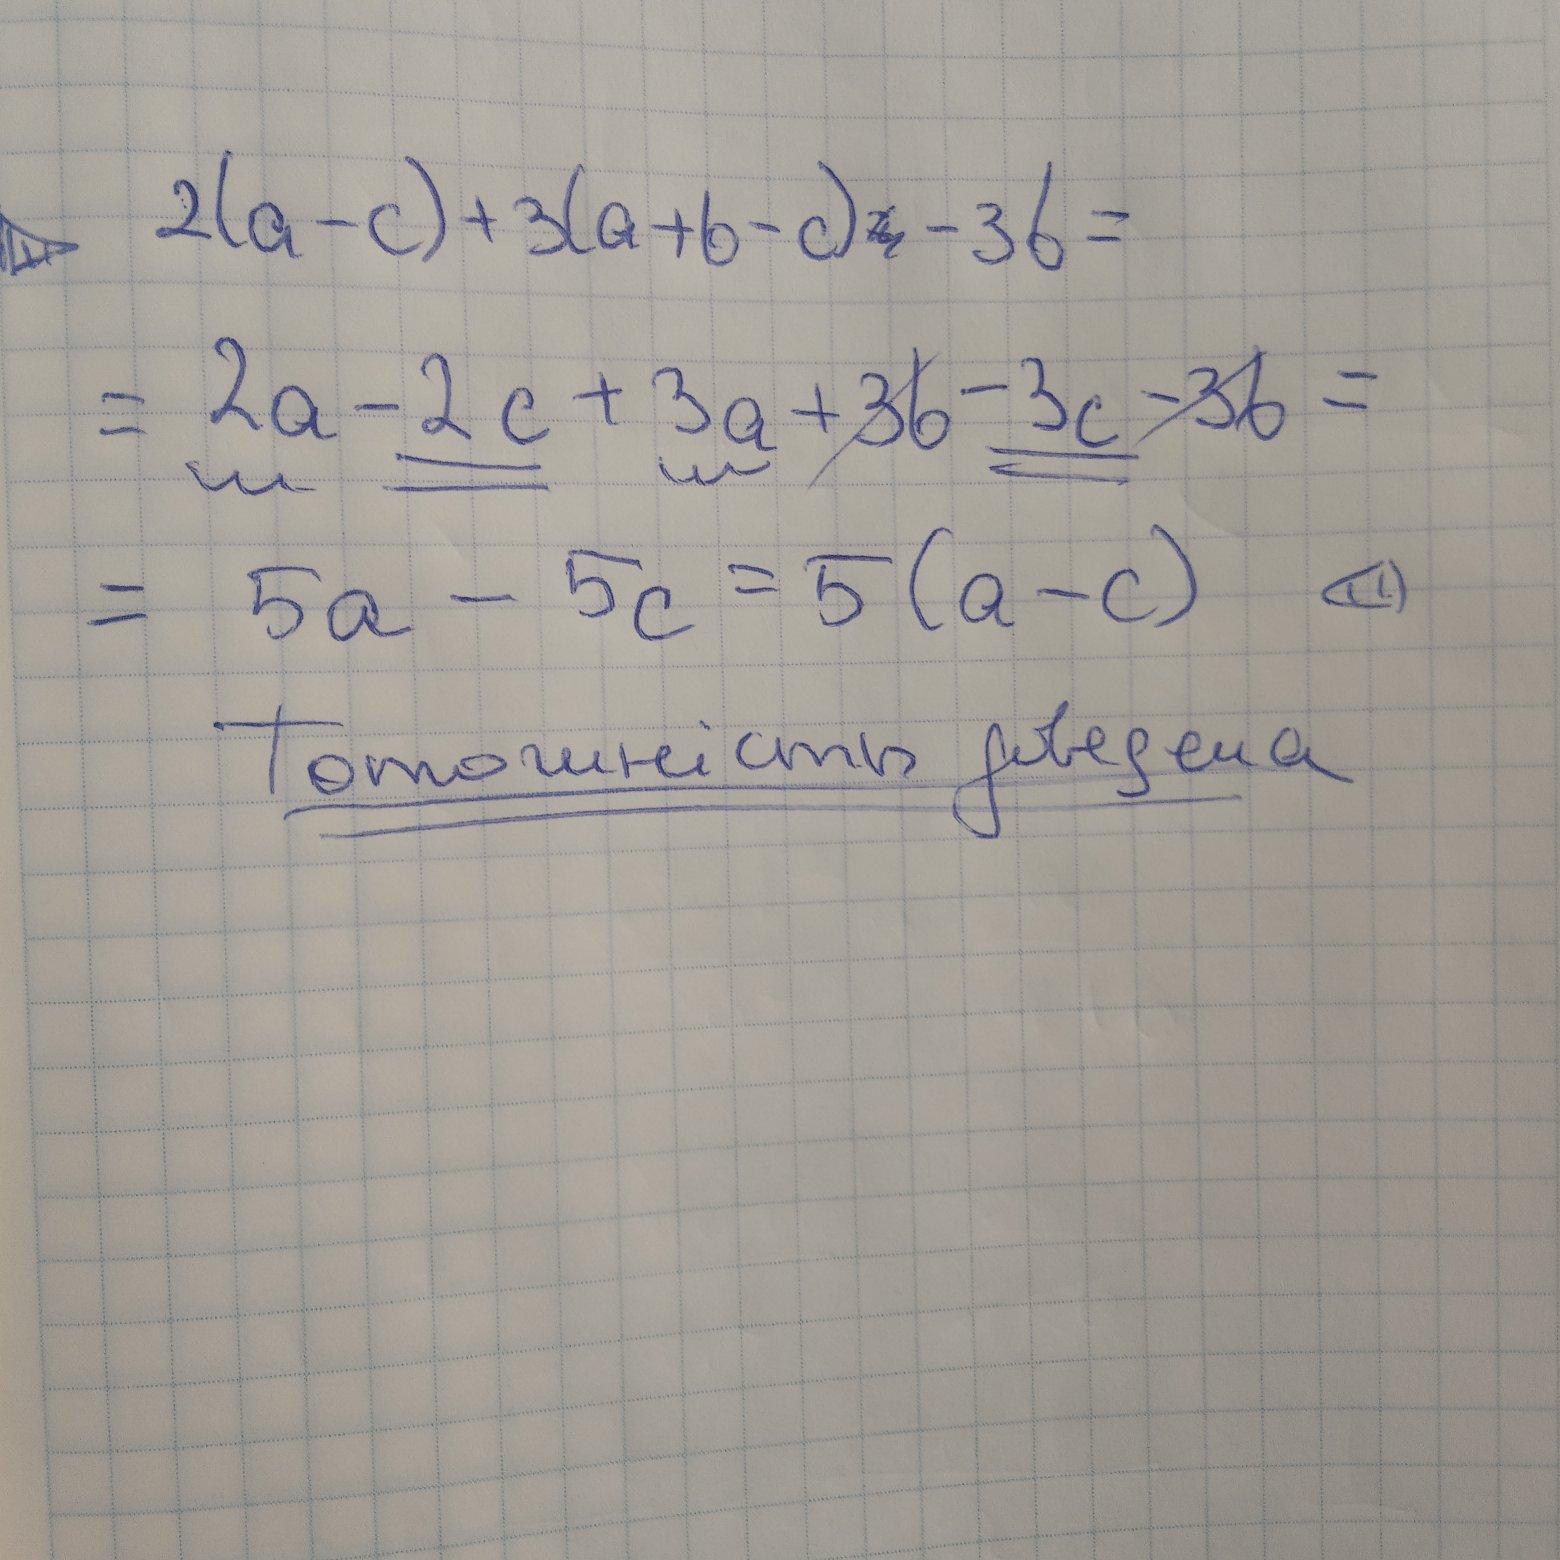 2(a-c)+3(a+b-c) -3b=
= 2a-2c+3a+3b-3c-3b=
= 5a - 5c = 5(a-c)
Тотожність доведена